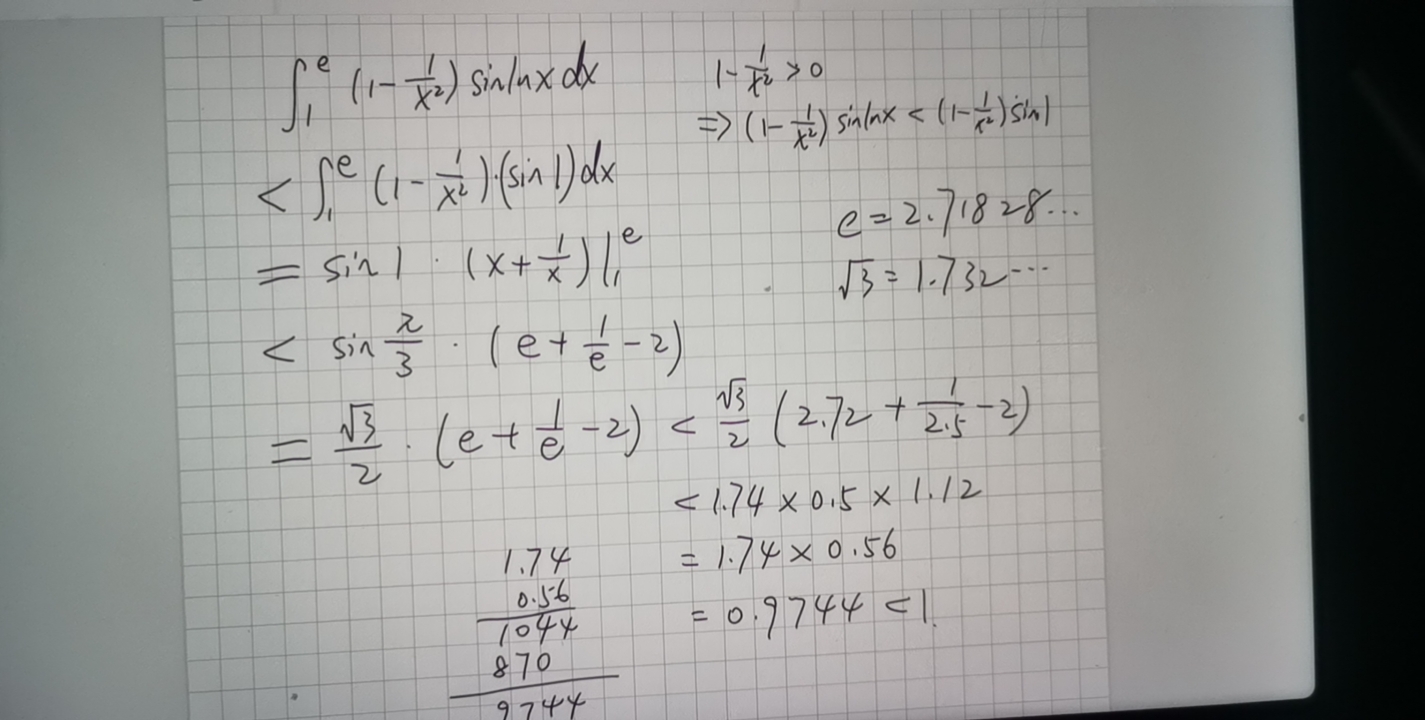 ∫₁ᵉ (1 - 1/x²) sinlnx dx
1 - 1/x² > 0
=> (1 - 1/x²) sinlnx < (1 - 1/x²) sin1
< ∫₁ᵉ (1 - 1/x²)·(sin 1) dx
e = 2.71828...
= sin 1 · (x + 1/x) |₁ᵉ
√3 = 1.732...
< sin π/3 · (e + 1/e - 2)
= √3/2 · (e + 1/e - 2) < √3/2 (2.72 + 1/2.5 - 2)
< 1.74 × 0.5 × 1.12
= 1.74 × 0.56
= 0.9744 < 1.
1.74
0.56
1044
870
9744